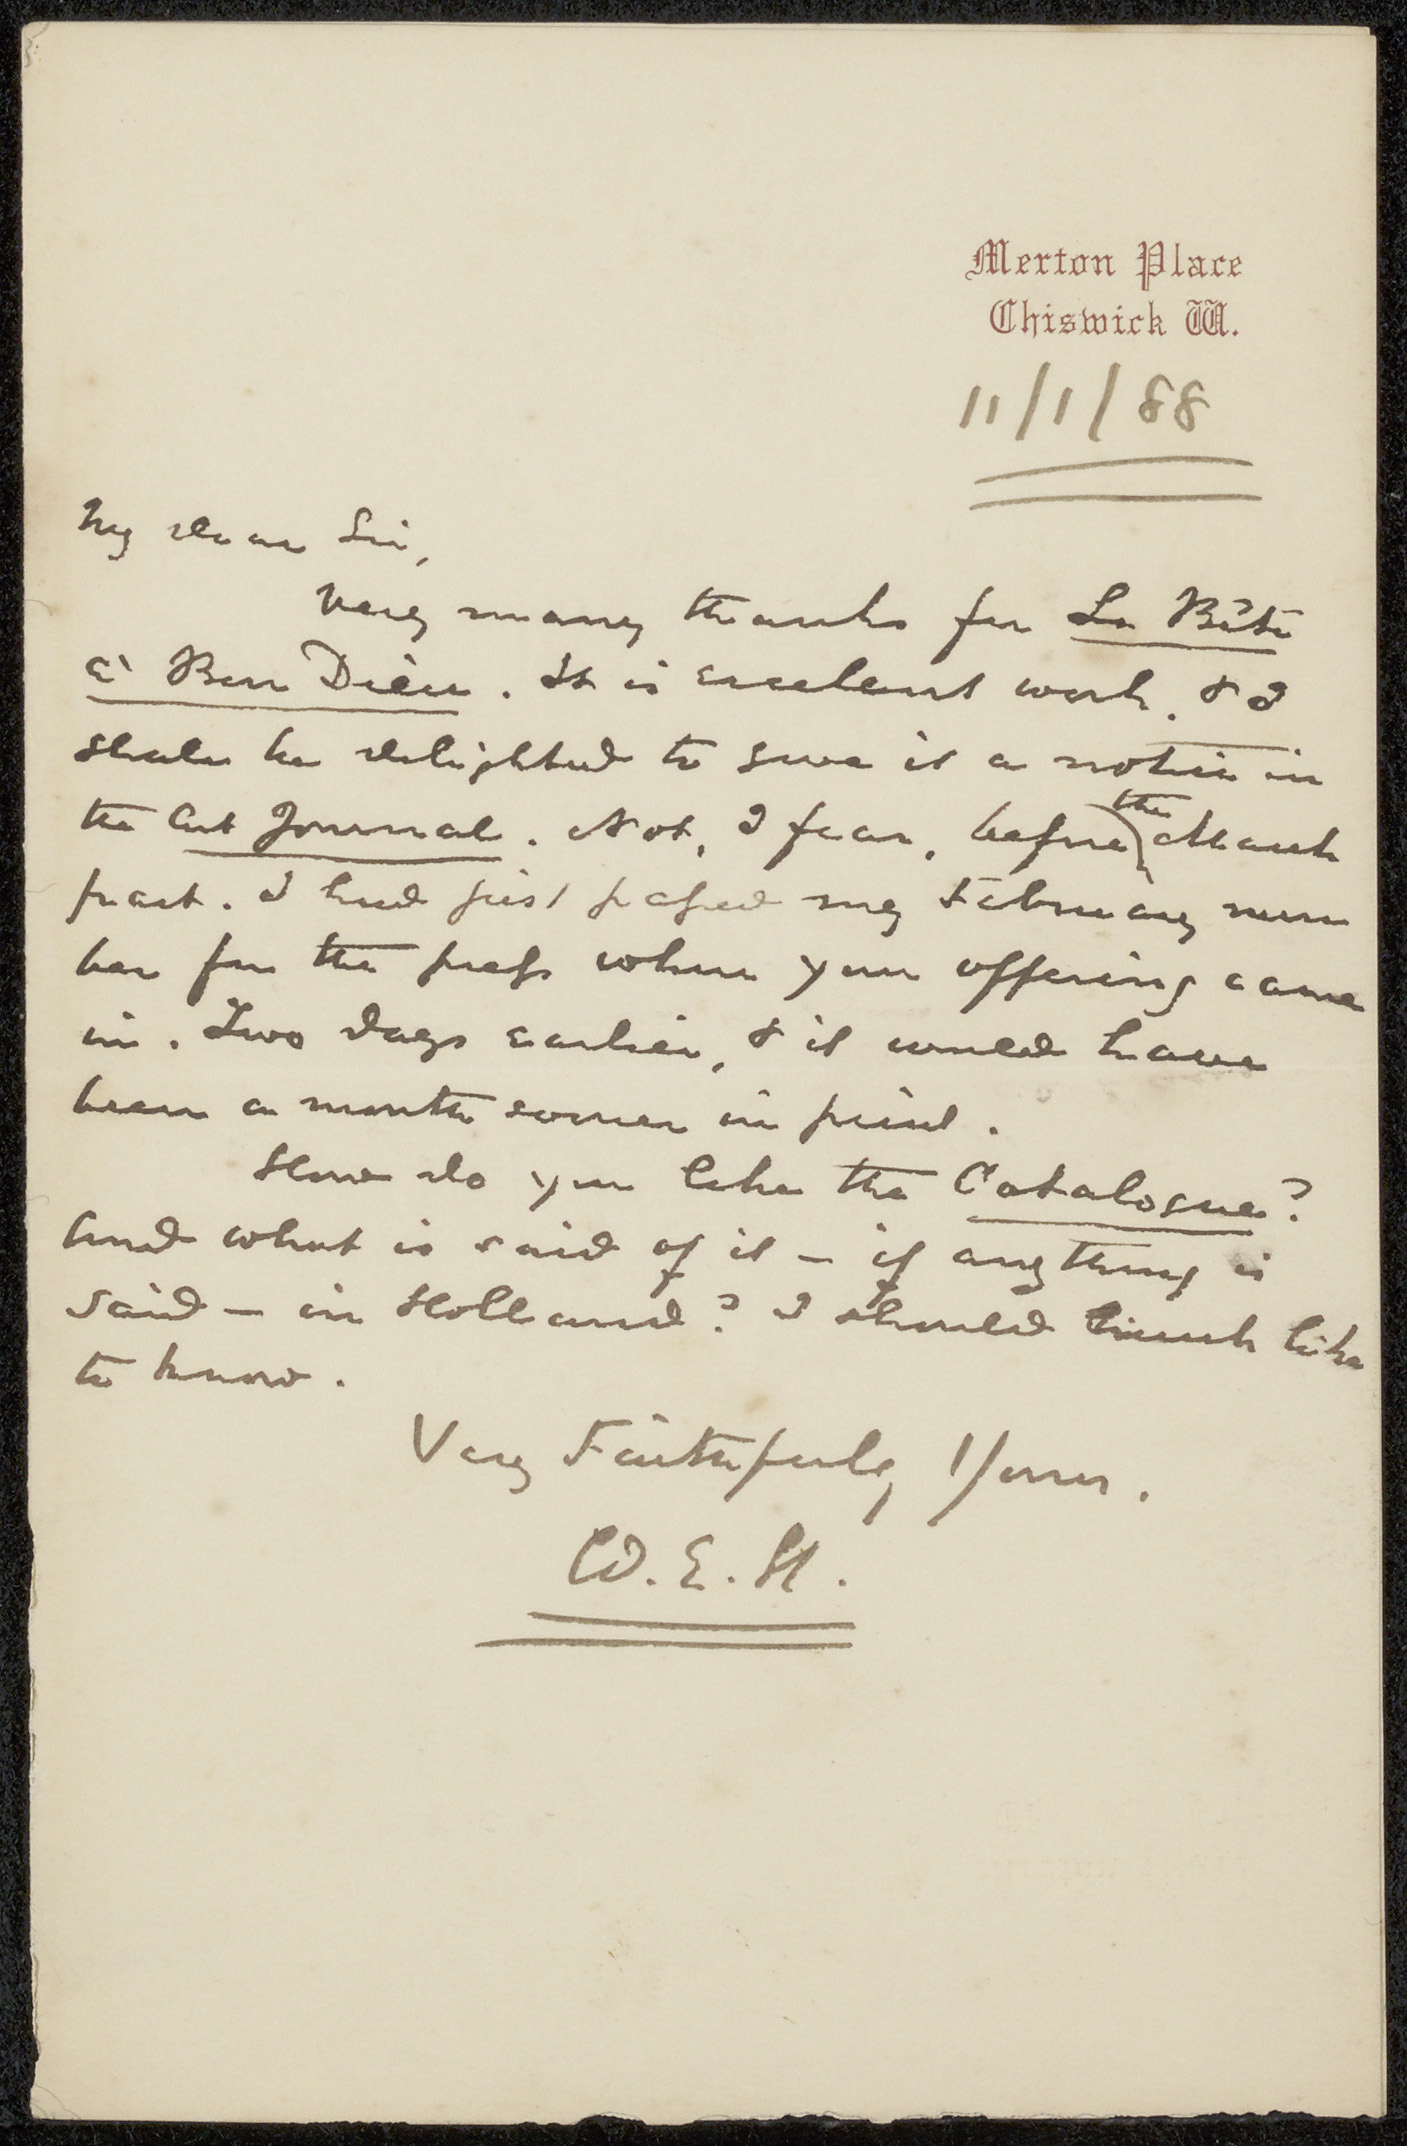 Merton Place
Chiswick W.
11/1/88
My dear Sir,
Very many thanks for La Bête
à Bon Dieu. It is excellent work, & I
shall be delighted to give it a notice in
the Art Journal. Not, I fear, before the March
part. I had just passed my February num
ber for the press when your offering came
in. Two days earlier, & it would have
been a month sooner in print.
How do you like the Catalogue?
And what is said of it – if anything is
said – in Holland? I should much like
to know.
Very Faithfully Yours.
W.E.H.